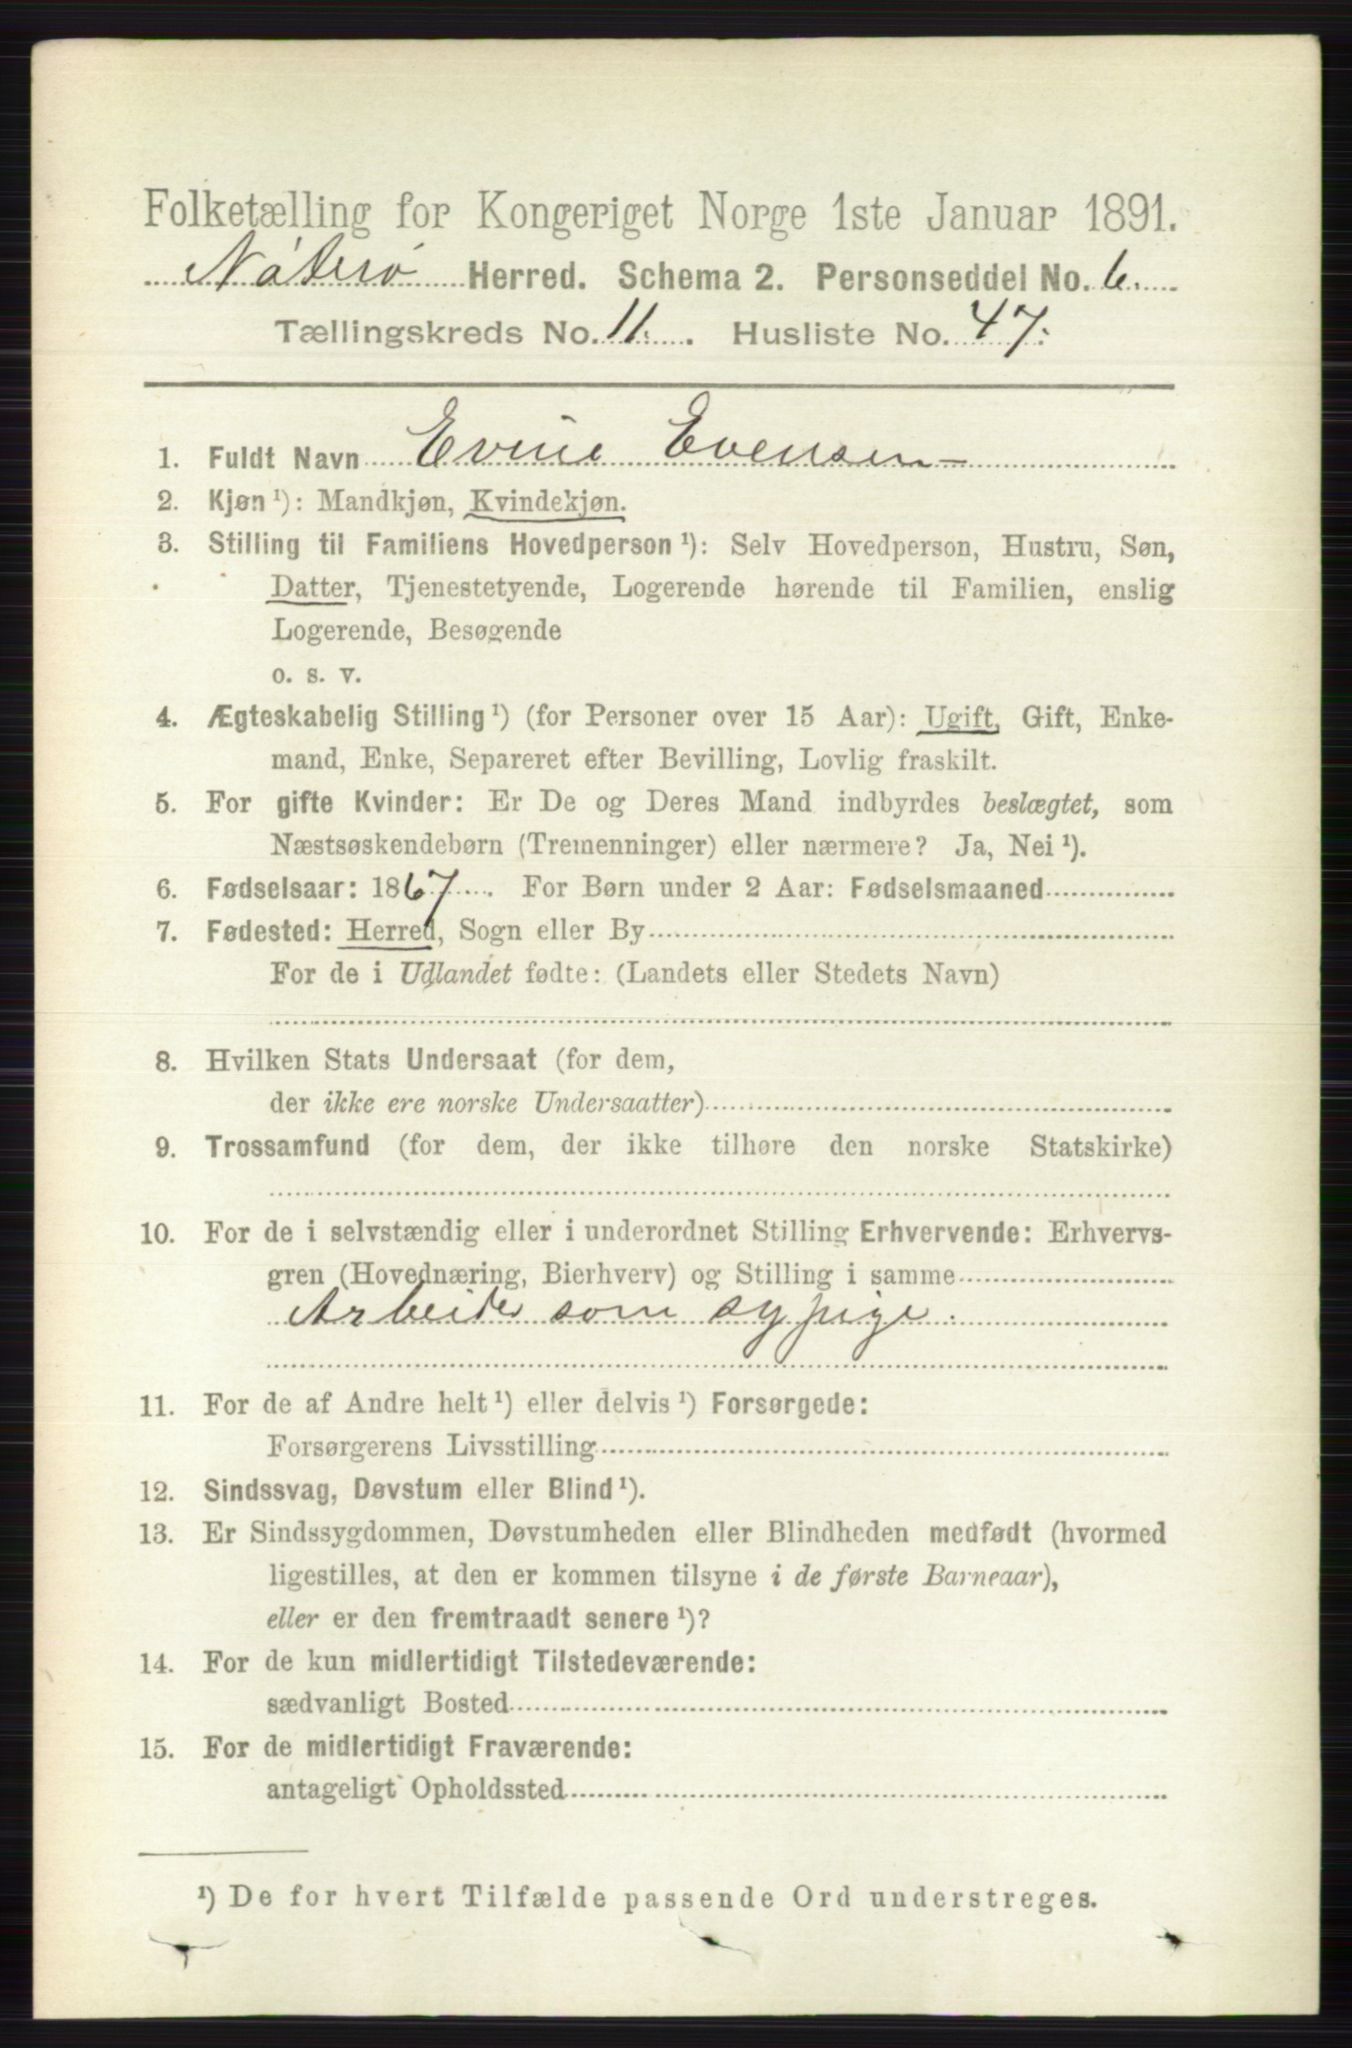 Folketælling for Kongeriget Norge 1ste Januar 1891.
Nøterø Herred. Schema 2. Personseddel No. 6.
Tællingskreds No. 11. Husliste No. 47.
1. Fuldt Navn Evine Evensen
2. Kjøn¹): Mandkjøn, Kvindekjøn.
3. Stilling til Familiens Hovedperson¹): Selv Hovedperson, Hustru, Søn,
Datter, Tjenestetyende, Logerende hørende til Familien, enslig
Logerende, Besøgende
o. s. v.
4. Ægteskabelig Stilling¹) (for Personer over 15 Aar): Ugift, Gift, Enke-
mand, Enke, Separeret efter Bevilling, Lovlig fraskilt.
5. For gifte Kvinder: Er De og Deres Mand indbyrdes beslægtet, som
Næstsøskendebørn (Tremenninger) eller nærmere? Ja, Nei¹).
6. Fødselsaar: 1867. For Børn under 2 Aar: Fødselsmaaned
7. Fødested: Herred, Sogn eller By
For de i Udlandet fødte: (Landets eller Stedets Navn)
8. Hvilken Stats Undersaat (for dem,
der ikke ere norske Undersaatter)
9. Trossamfund (for dem, der ikke tilhøre den norske Statskirke)
10. For de i selvstændig eller i underordnet Stilling Erhvervende: Erhvervs-
gren (Hovednæring, Bierhverv) og Stilling i samme
Arbeider som sypige.
11. For de af Andre helt¹) eller delvis¹) Forsørgede:
Forsørgerens Livsstilling
12. Sindssvag, Døvstum eller Blind¹).
13. Er Sindssygdommen, Døvstumheden eller Blindheden medfødt (hvormed
ligestilles, at den er kommen tilsyne i de første Barneaar),
eller er den fremtraadt senere¹)?
14. For de kun midlertidigt Tilstedeværende:
sædvanligt Bosted
15. For de midlertidigt Fraværende:
antageligt Opholdssted
¹) De for hvert Tilfælde passende Ord understreges.